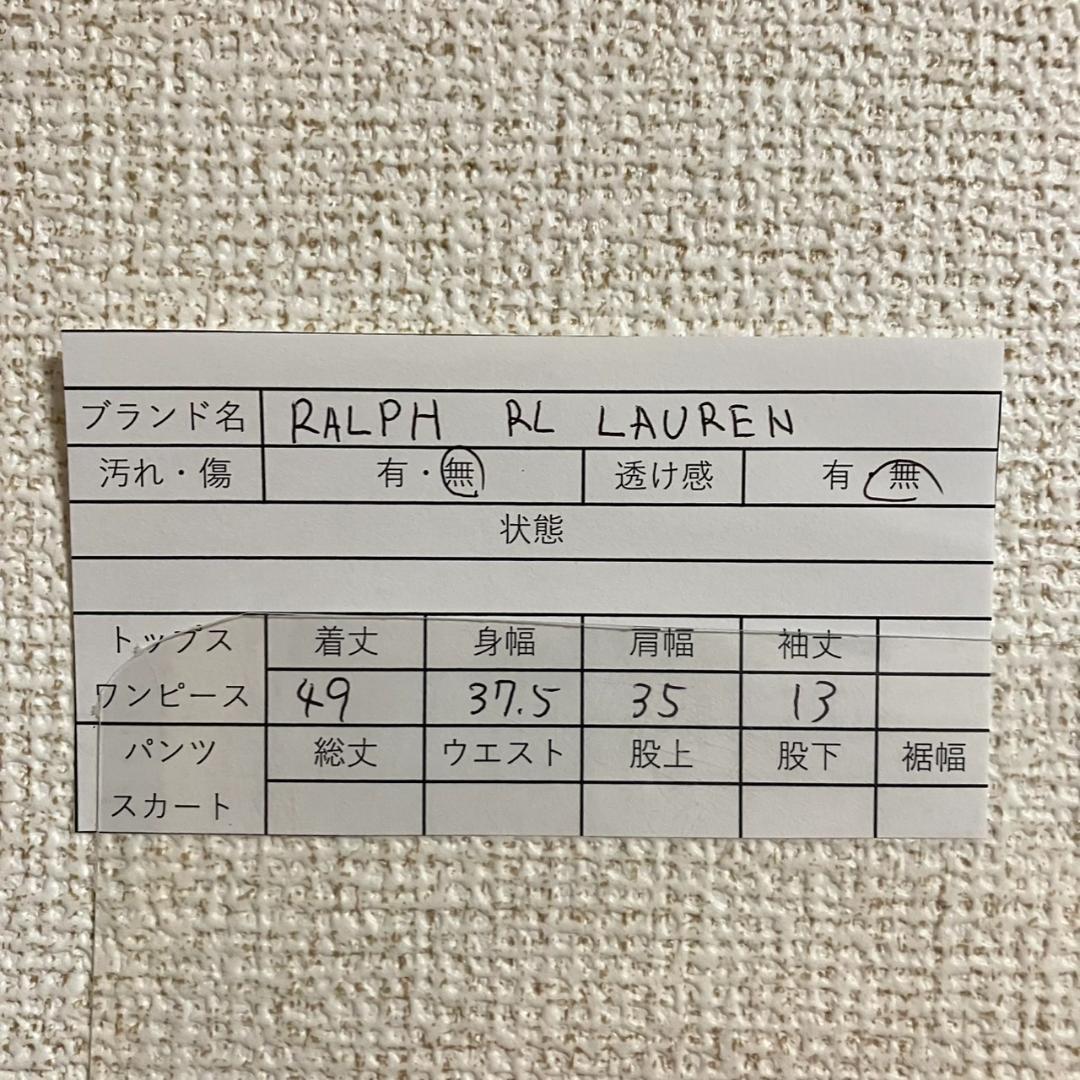 ブランド名 RALPH RL LAUREN
汚れ・傷 有・無 透け感 有・無
状態
トップス 着丈 身幅 肩幅 袖丈
ワンピース 49 37.5 35 13
パンツ 総丈 ウエスト 股上 股下 裾幅
スカート